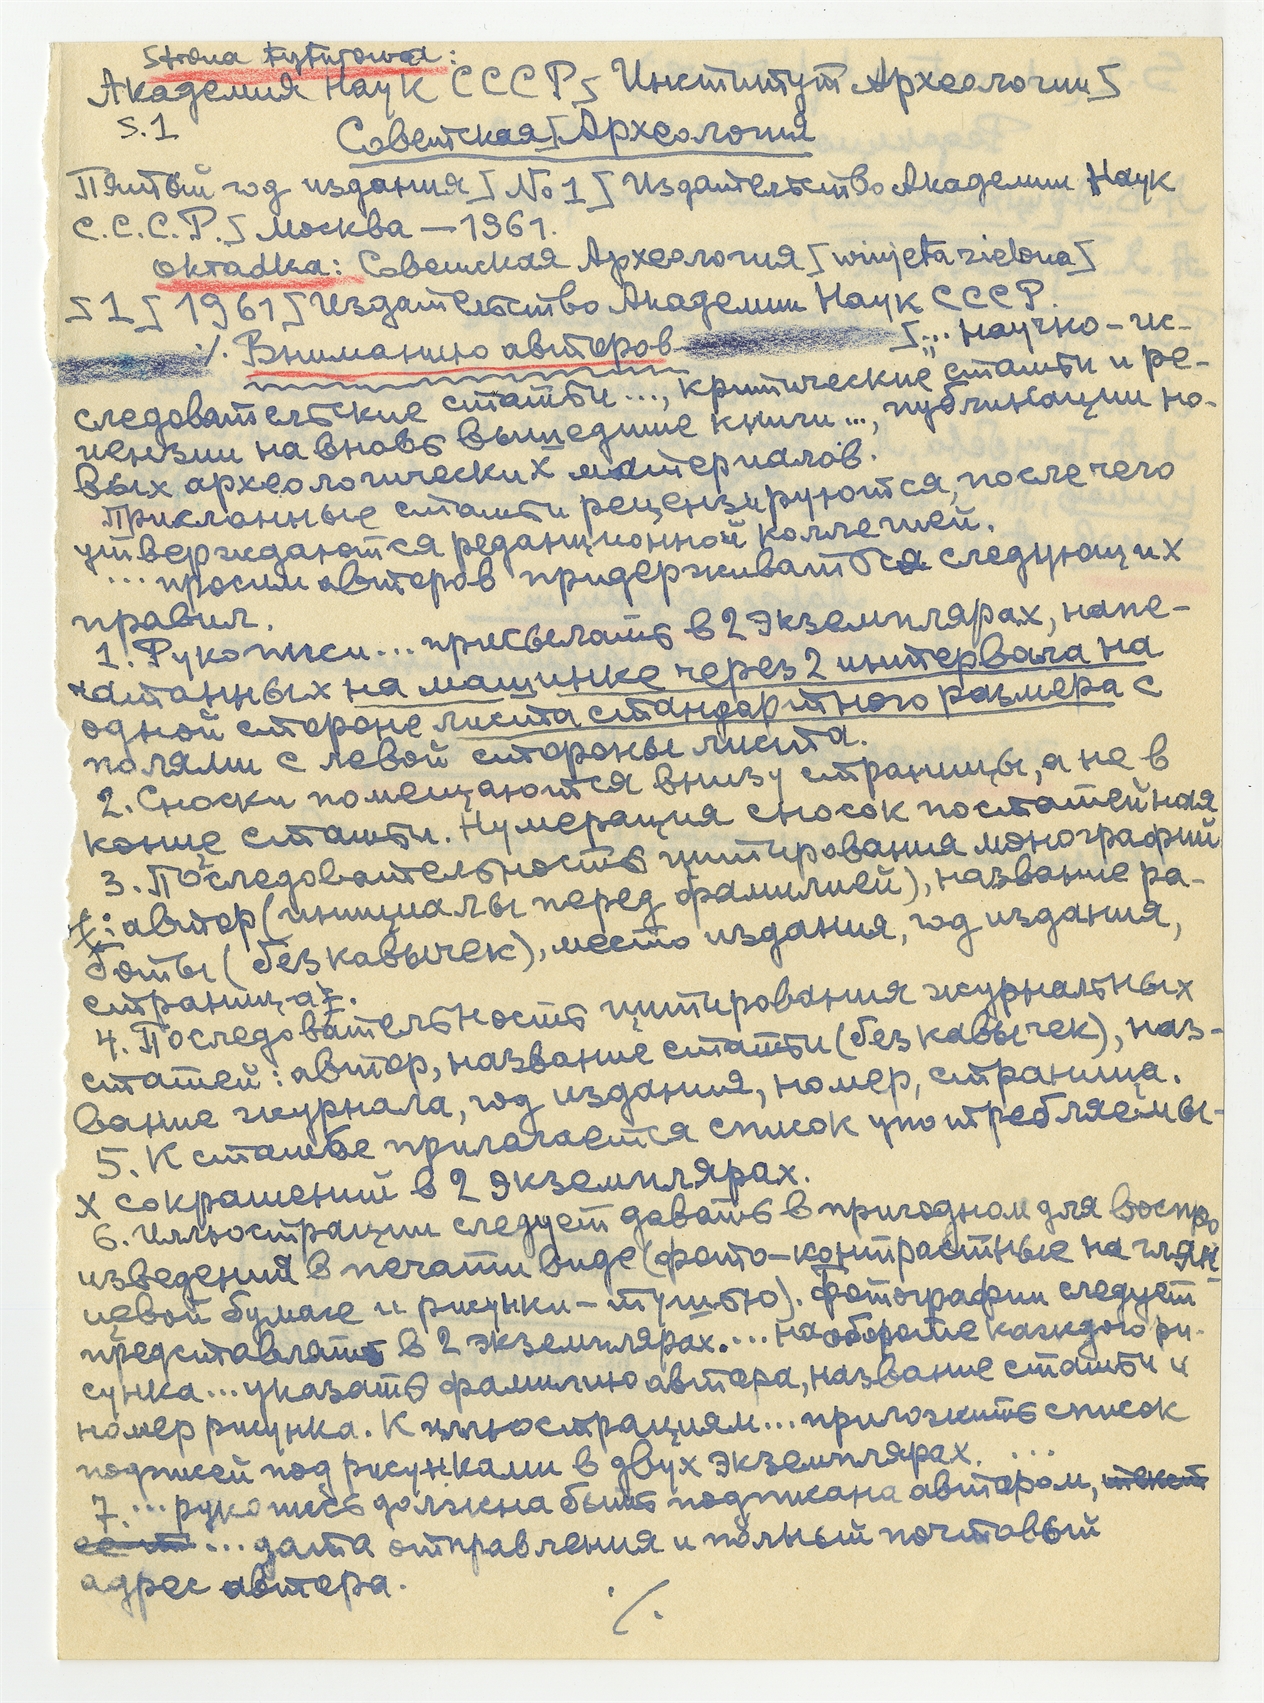 Strona tytułowa:
Академия Наук СССР ⌠ Институт Археологии ⌠
S. 1 Советская ⌠ Археология
Пятый год издания ⌠ №1 ⌠ Издательство Академии Наук
С.С.С.Р. ⌠ Москва — 1961.
Okładka: Советская Археология ⌠ winjeta zielona ⌠
⌠ 1 ⌠ 1961 ⌠ Издательство Академии Наук СССР.
·/. Вниманию авторов ⌠... научно-ис-
следовательские статьи..., критические статьи и ре-
цензии на вновь вышедшие книги..., публикации но-
вых археологических материалов.
Присланные статьи рецензируются, после чего
утверждаются редакционной коллегией.
... просим авторов придерживаться следующих
правил.
1. Рукописи... присылать в 2 экземплярах, напе-
чатанных на машинке через 2 интервала на
одной стороне листа стандартного размера с
полями с левой стороны листа.
2. Сноски помещаются внизу страницы, а не в
конце статьи. Нумерация сносок постатейная
3. Последовательность цитирования монографий
: автор (инициалы перед фамилией), название ра-
боты (без кавычек), место издания, год издания,
страница.
4. Последовательность цитирования журнальных
статей: автор, название статьи (без кавычек), наз-
вание журнала, год издания, номер, страница.
5. К статье прилагается список употребляемы-
х сокращений в 2 экземплярах.
6. Иллюстрации следует давать в пригодном для воспро
изведения в печати виде (фото-контрастные на глян
цевой бумаге и рисунки – тушью). Фотографии следует
представлять в 2 экземплярах.... на обороте каждого ри-
сунка... указать фамилию автора, название статьи и
номер рисунка. К иллюстрациям... приложить список
подписей под рисунками в двух экземплярах. ...
7. ... рукопись должна быть подписана автором, текст
... дата отправления и полный почтовый
адрес автора.
·/.